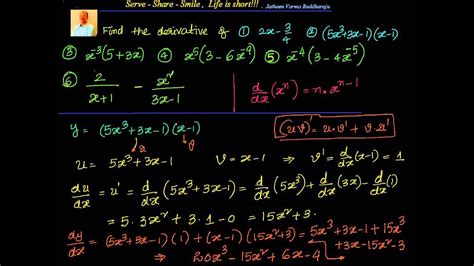 Serve - Share - Smile , Life is short!!! . Jatheen Varma Buddharaju
Find the derivative of ① 2x - 3/4 ② (5x³+3x-1)(x-1)
③ x⁻³(5+3x) ④ x⁵(3-6x⁻⁹) ⑤ x⁻⁴(3-4x⁻⁵)
⑥ 2/(x+1) - x²/(3x-1) d/dx(xⁿ) = n·xⁿ⁻¹
y = (5x³+3x-1)(x-1) (uv)' = u·v' + v·u'
u v
u = 5x³+3x-1 v = x-1 ⇒ v' = d/dx(x-1) = 1
du/dx = u' = d/dx(5x³+3x-1) = d/dx(5x³) + d/dx(3x) - d/dx(1)
= 5·3x² + 3·1 - 0 = 15x²+3
dy/dx = (5x³+3x-1)(1) + (x-1)(15x²+3) = 5x³+3x-1+15x³
+3x-15x²-3
⇒ 20x³-15x²+6x-4